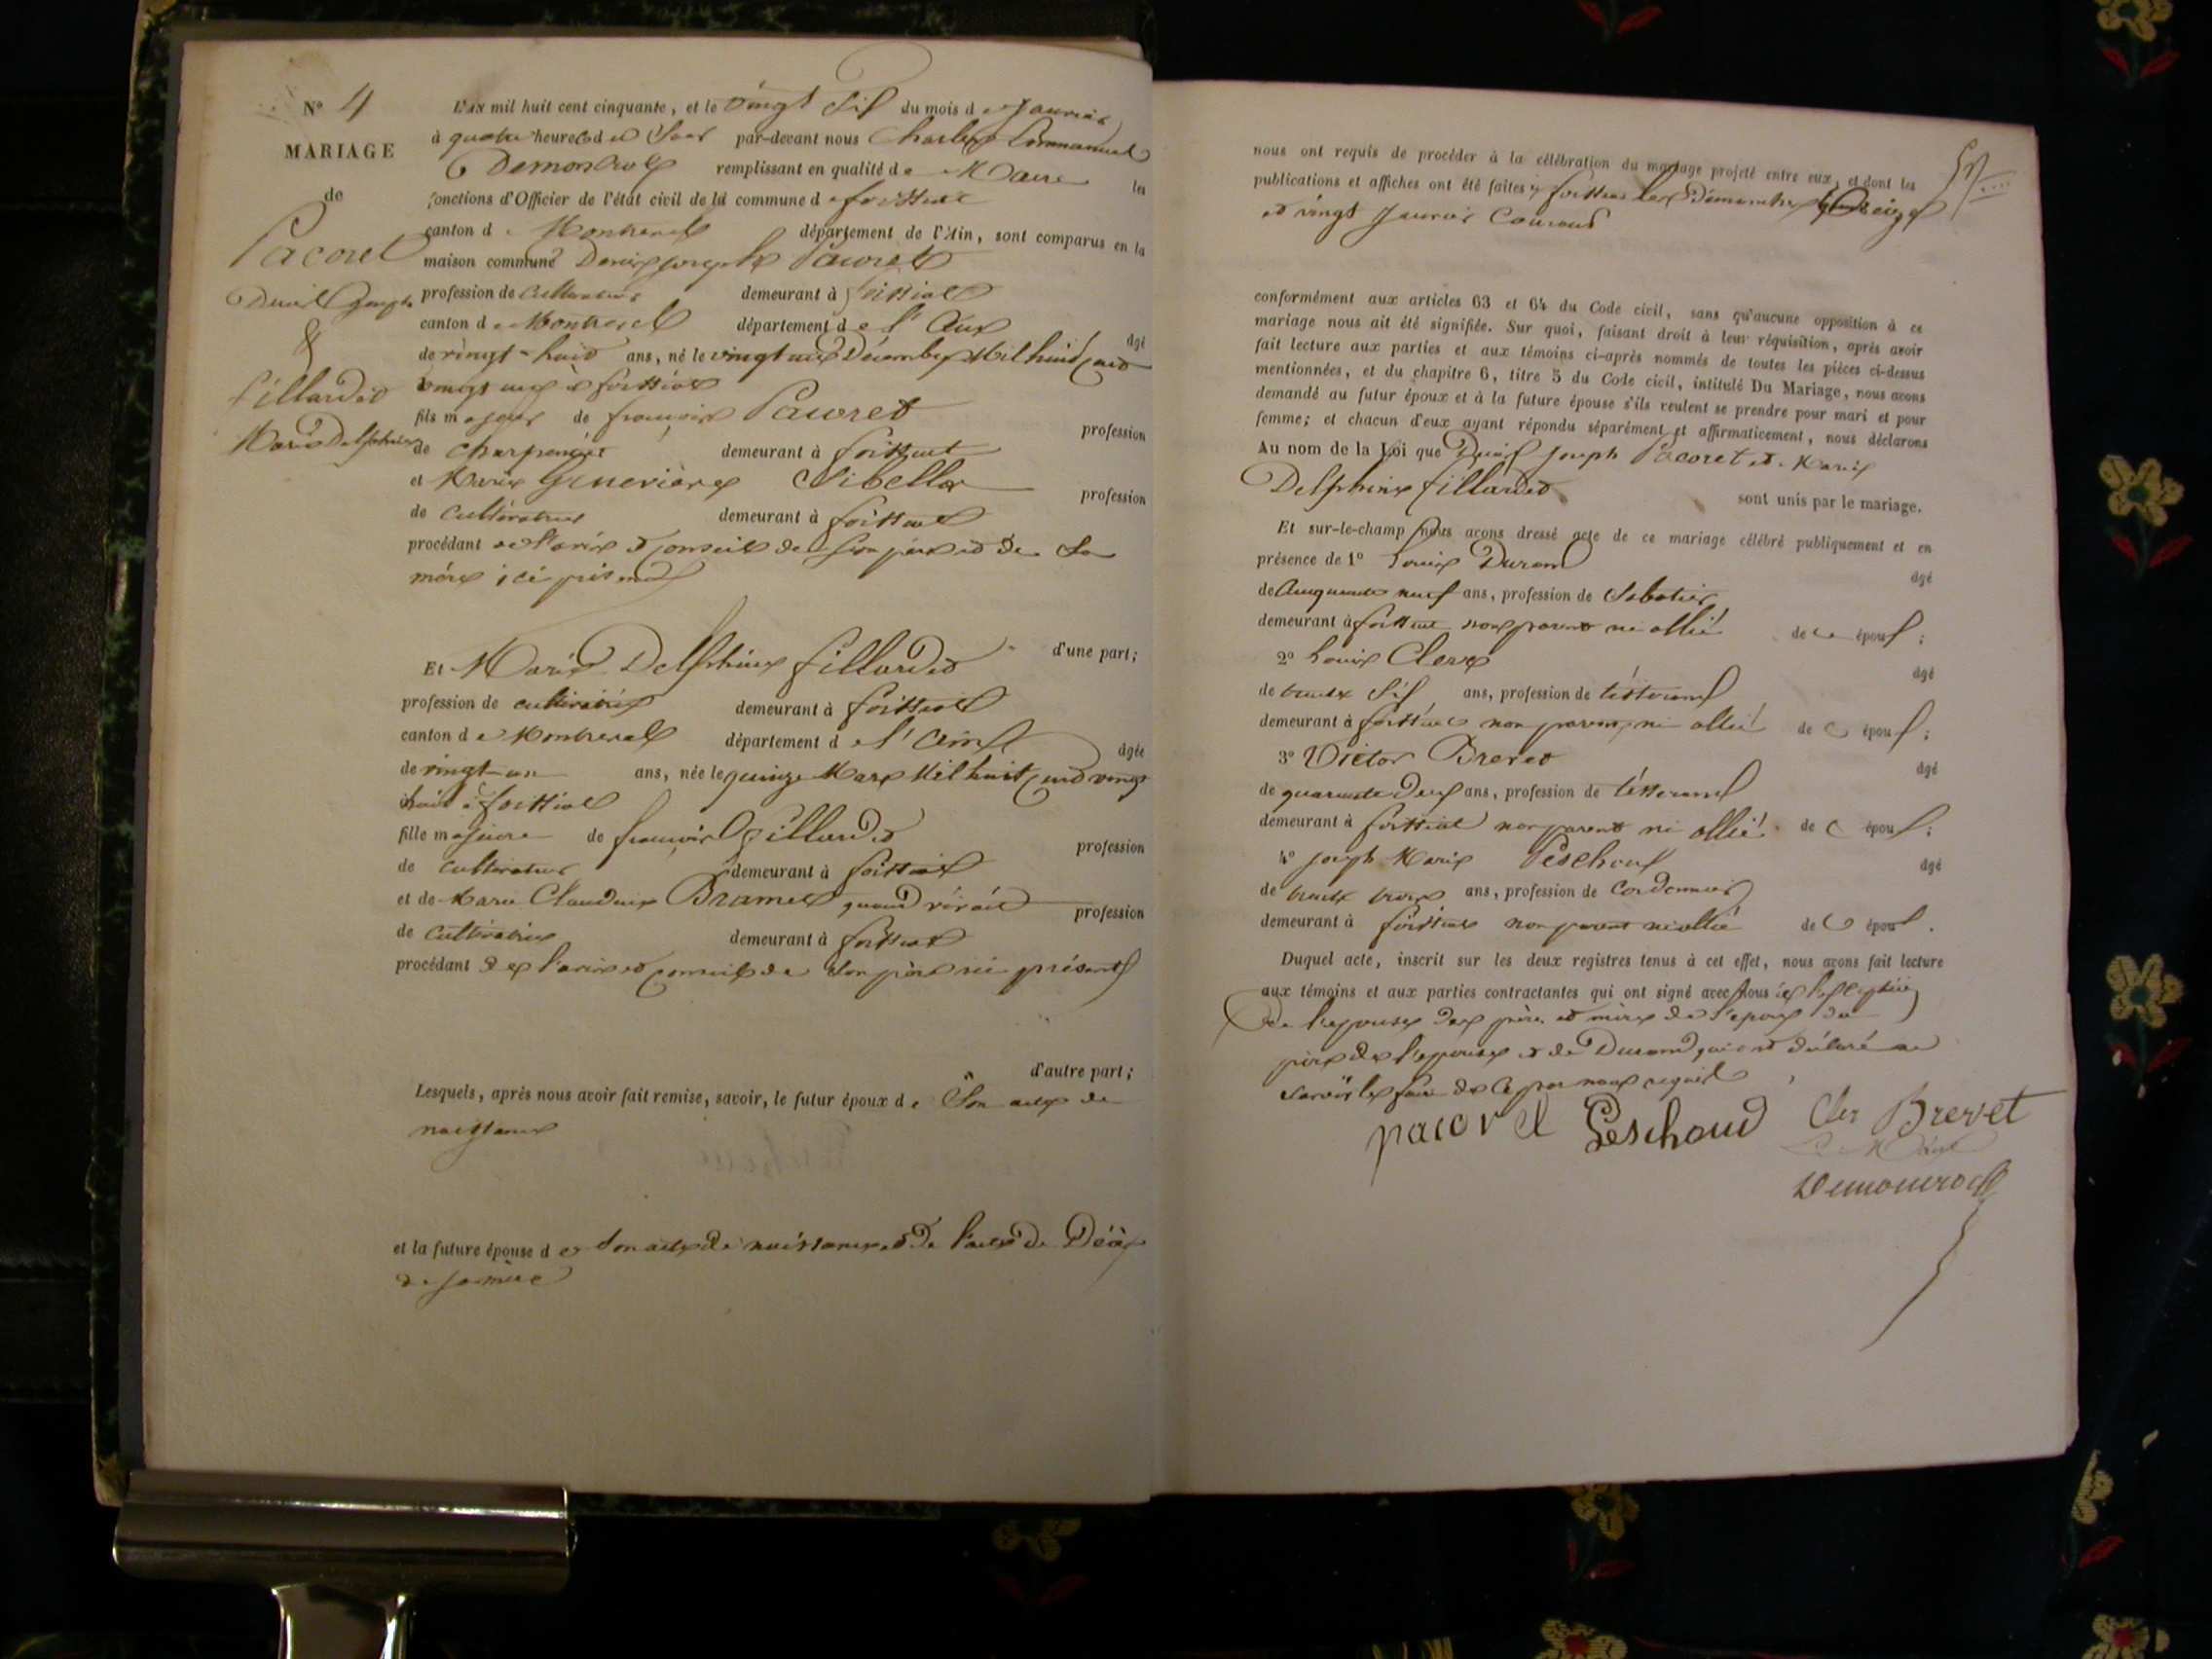 N° 4
MARIAGE
de
Pacoret
Denis Joseph
&
fillardet
Marie Delphine
L'an mil huit cent cinquante, et le vingt six du mois de Janvier
à quatre heures du Soir par-devant nous Charles Emmanuel
remplissant en qualité de Maire les
fonctions d'Officier de l'état civil de la commune de foissiat
canton de Montrevel département de l'Ain, sont comparus en la
maison commune Denis joseph Pacoret
profession de Cultivateur demeurant à foissiat
canton de Montrevel département de l'Ain âgé
de vingt-huit ans, né le vingt un Décembre Mil huit Cent
vingt un à foissiat
fils majeur de françois Pacoret profession
de Charpentier demeurant à foissiat
et Marie Genevieve Sibellas profession
de Cultivatrice demeurant à foissiat
procédant de l'avis et conseil de son père et de Sa
mère ici présents
d'une part;
Et Marie Delphine fillardet
profession de cultivatrice demeurant à foissiat
canton de Montrevel département de l'Ain âgée
de vingt-un ans, née le quinze Mars Mil huit Cent vingt
huit à foissiat
fille majeure de françois fillardet profession
de Cultivateur demeurant à foissiat
et de Marie Claudine Bramet quand vivait profession
de Cultivatrice demeurant à foissiat
procédant de l'avis et conseil de son père ici présent
d'autre part;
Lesquels, après nous avoir fait remise, savoir, le futur époux de Son acte de
naissance
et la future épouse de son acte de naissance et de l'acte de Décès
de sa mère
nous ont requis de procéder à la célébration du mariage projeté entre eux, et dont les
publications et affiches ont été faites à foissiat les Dimanches
et vingt Janvier Courant
conformément aux articles 63 et 64 du Code civil, sans qu'aucune opposition à ce
mariage nous ait été signifiée. Sur quoi, faisant droit à leur réquisition, après avoir
fait lecture aux parties et aux témoins ci-après nommés de toutes les pièces ci-dessus
mentionnées, et du chapitre 6, titre 5 du Code civil, intitulé Du Mariage, nous avons
demandé au futur époux et à la future épouse s'ils veulent se prendre pour mari et pour
femme; et chacun d'eux ayant répondu séparément et affirmativement, nous déclarons
Au nom de la Loi que Denis Joseph Pacoret et Marie
Delphine fillardet sont unis par le mariage.
Et sur-le-champ nous avons dressé acte de ce mariage célébré publiquement et en
présence de 1° Louis Durand âgé
de Cinquante neuf ans, profession de Sabotier
demeurant à foissiat non parent ni allié de ce époux;
2° Louis Clerc âgé
de trente six ans, profession de tisserand
demeurant à foissiat non parent ni allié de ce époux;
3° Victor Brevet âgé
de quarante deux ans, profession de tisserand
demeurant à foissiat non parent ni allié de ce époux;
4° joseph Marie Peschoux âgé
de trente trois ans, profession de Cordonnier
demeurant à foissiat non parent ni allié de ce époux.
Duquel acte, inscrit sur les deux registres tenus à cet effet, nous avons fait lecture
aux témoins et aux parties contractantes qui ont signé avec nous à l'exception
de l'epouse des père et mère de l'epoux du
père de l'epouse et de Durand qui ont déclaré ne
savoir le faire de ce par nous requis
pacoret Peschoud Clerc Brevet
Le Maire